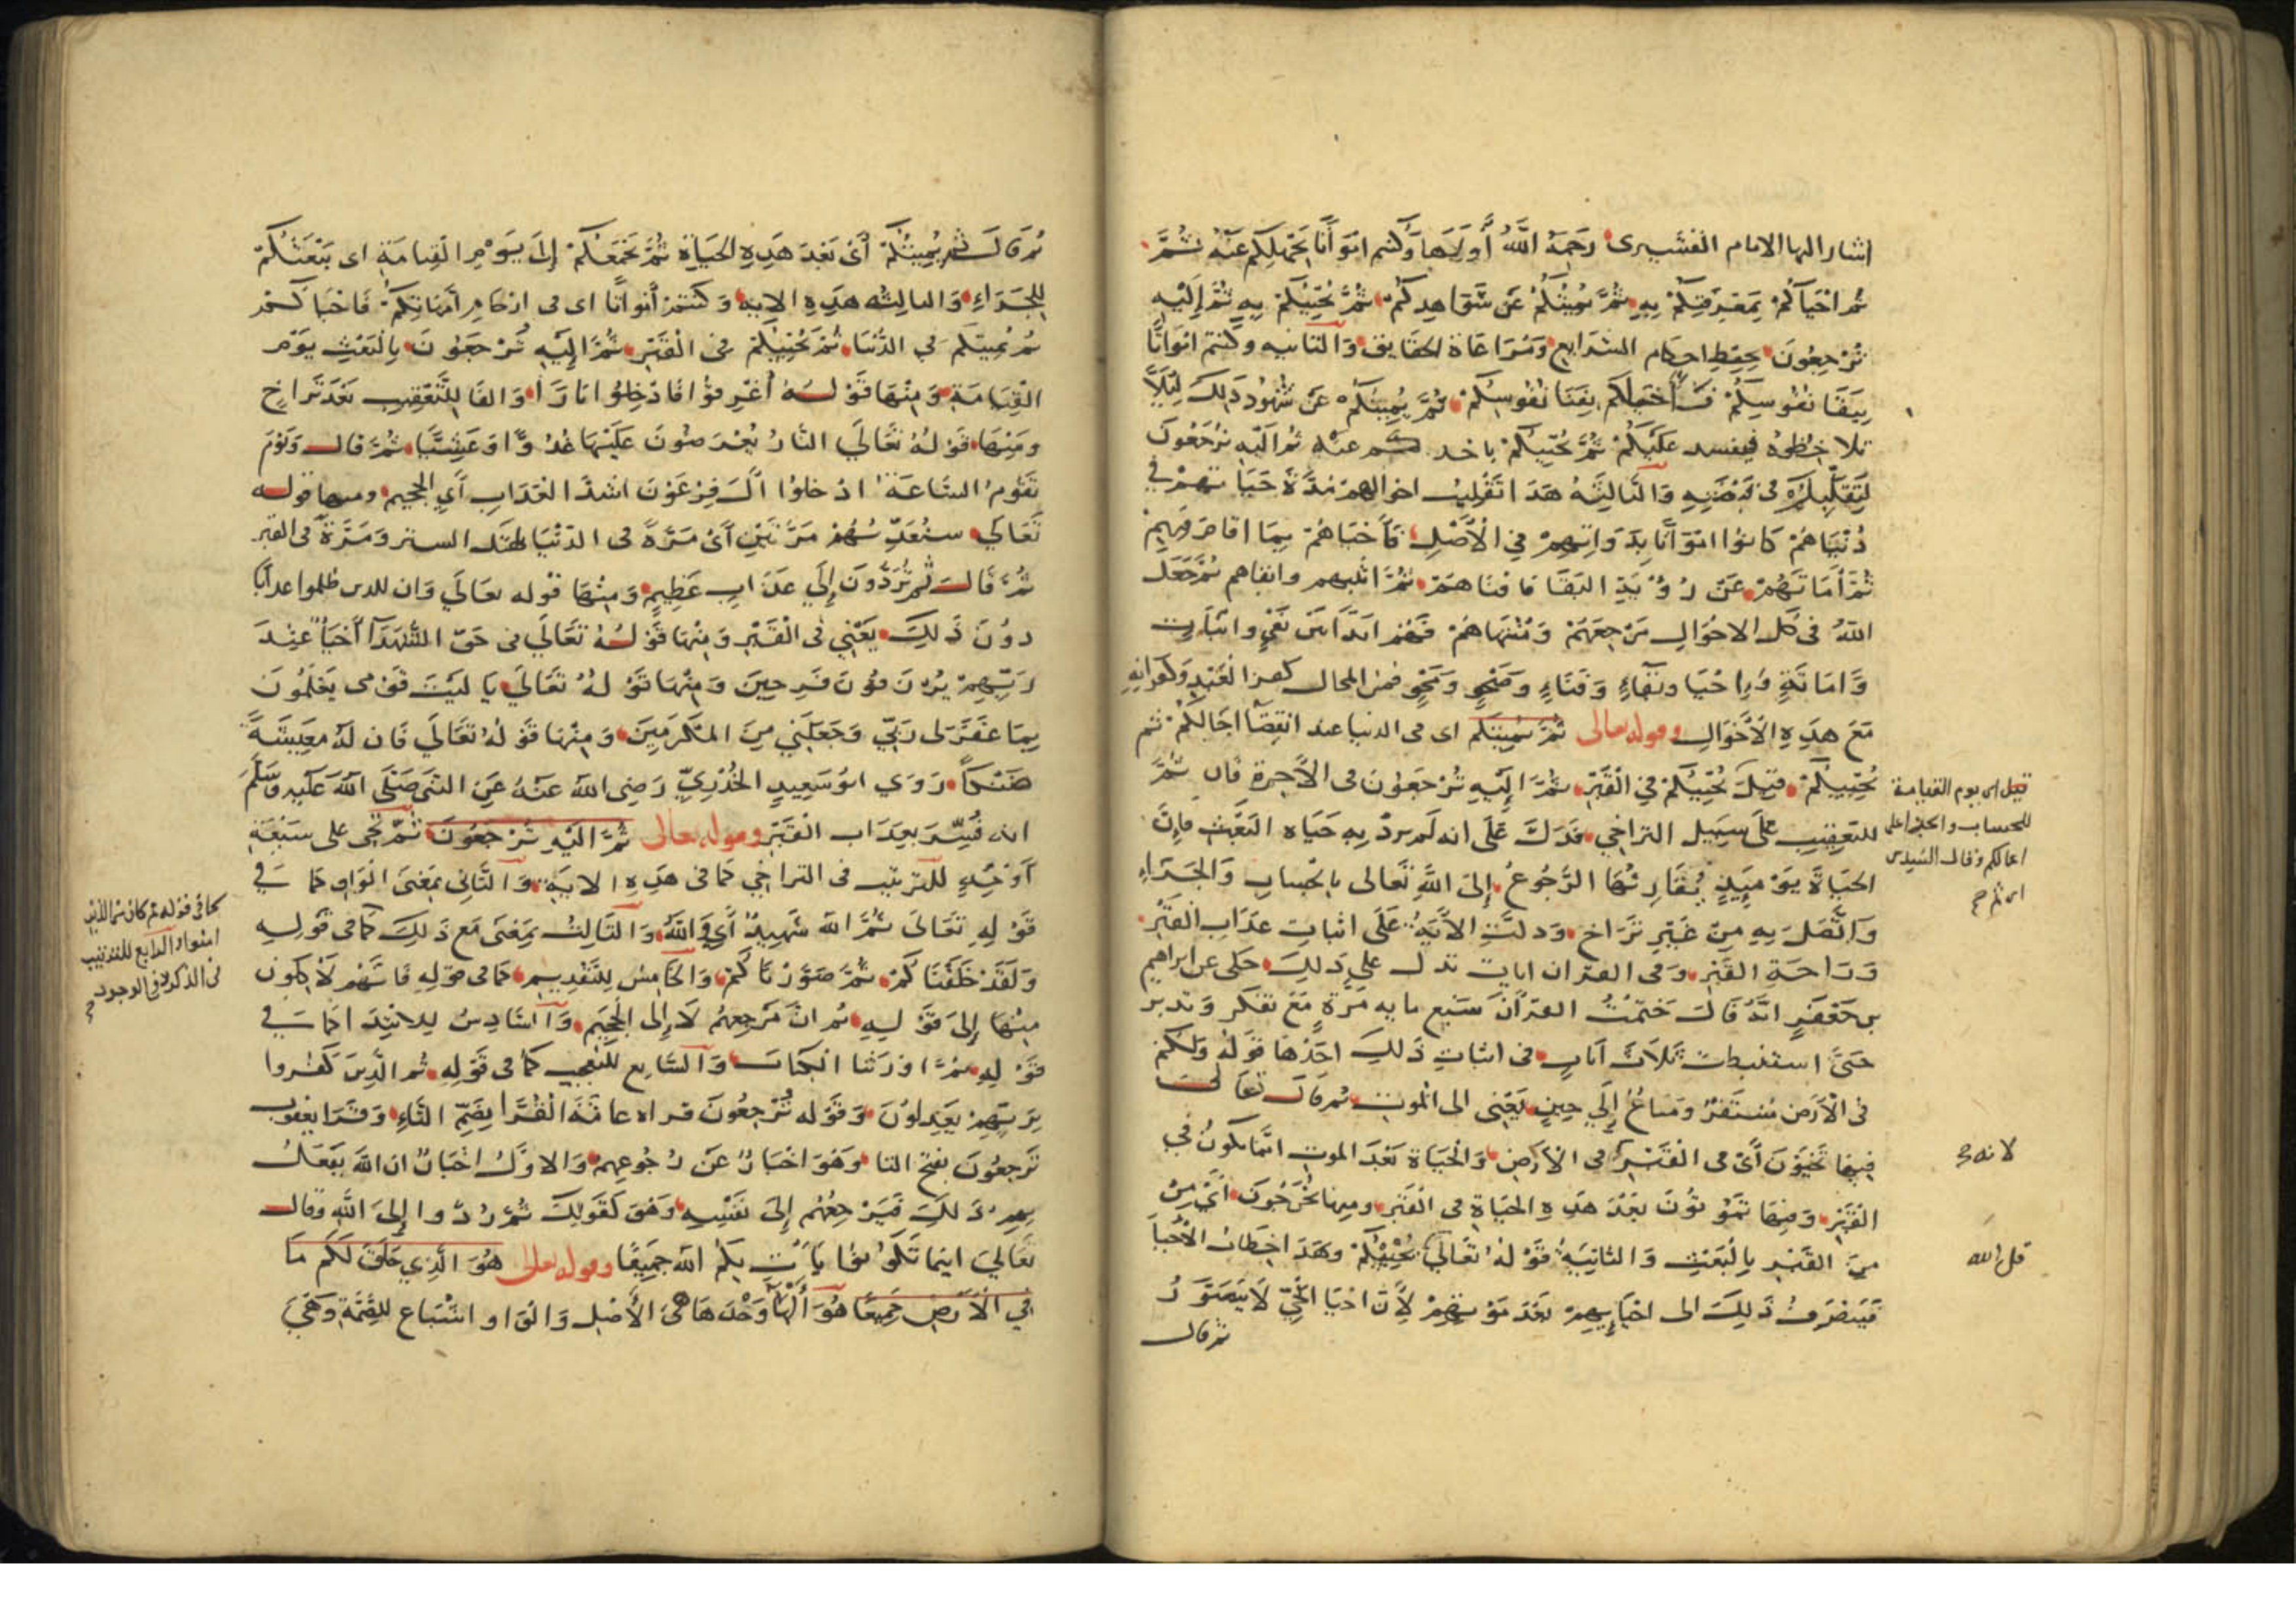 اشار اليها الامام القشيرى رحمه الله أولها وكنتم امواتا بجهلكم عنه ثم
ثم احياكم بمعرفتكم به ثم يميتكم عن شواهدكم ثم يحييكم به ثم إليه
ترجعون بحفظ احكام الشرايع ومراعاة الحقايق والثانيه وكنتم امواتا
ببقا نفوسكم فأحياكم بفنا نفوسكم ثم يميتكم عن شهود ذلك لئلا
تلاحظوه فيفسد عليكم ثم يحييكم باخذكم عنه ثم اليه ترجعون
لتقلبكم فى قبضته والثالثة هذا تقليب احوالهم مدة حياتهم في
دنياهم كانوا امواتا بذواتهم في الأصل فأحياهم بما اقامهم
ثم أماتهم عن رؤية البقا فافناهم ثم اثبتهم وابقاهم ثم جعل
الله فى كل الاحوال مرجعهم ومنتهاهم فهم ابدا بين نفي واثبات
وامانة واحيا وبقاء وفناء وصحو ومحو فمن المحال كفر العبد وكفرانه
مع هذه الأحوال وقوله تعالى ثم يميتكم اى فى الدنيا عند انقضا اجالكم ثم
يحييكم قيل يحييكم في القبر ثم إليه ترجعون فى الاخرة فان ثم
للتعقيب على سبيل التراخي فدل على انه لم يرد به حياه البعث فإن
الحياة يومئذ يقارنها الرجوع إلى الله تعالى بالحساب والجزاء
واتصل به من غير تراخ ودلت الآية على اثبات عذاب القبر
وراحة القبر وفى القران ايات تدل على ذلك حكى عن ابراهيم
بن جعفر انه قال ختمت القرآن سبع مايه مرة مع تفكر وتدبر
حتى استنبطت ثلاث آيات فى اثبات ذلك احدها قوله ولكم
فى الأرض مستقر ومتاع إلى حين يعني الى الموت ثم قال تعالى
فيها تحيون أى فى القبر فى الأرض والحياة بعد الموت انما يكون في
القبر ومنها تموتون بعد هذه الحياة فى القبر ومنها تخرجون أى من
من القبر بالبعث والثانية قوله تعالى يحييكم وهذا خطاب الأحيا
فينصرف ذلك الى احيايهم بعد موتهم لأن احيا الحي لا يتصور
ثم قال
قيل اى يوم القيامة
للحساب والجزا على
اعمالكم وقال السيدى
لانه
قل الله
ثم قال ثم يميتكم أى بعد هذه الحياة ثم يجمعكم إلى يوم القيامة اى يبعثكم
للجزاء والثالثه هذه الايه وكنتم أمواتا اى فى ارحام أمهاتكم فاحياكم
ثم يميتكم في الدنيا ثم يحييكم فى القبر ثم إليه ترجعون بالبعث يوم
القيامة ومنها قوله أغرقوا فادخلوا نارا والفا للتعقيب بعد تراخ
ومنها قوله تعالي النار يعرضون عليها غدوا وعشيا ثم قال ويوم
تقوم الساعة ادخلوا آل فرعون اشد العذاب أي الجحيم ومنها قوله
تعالي سنعذبهم مرتين أى مرة فى الدنيا بهتك الستر ومرة فى القبر
ثم قال ثم يردون إلي عذاب عظيم ومنها قوله تعالي وان للذين ظلموا عذابا
دون ذلك يعني فى القبر ومنها قوله تعالي فى حق الشهدآ أحيا عند
ربهم يرزقون فرحين ومنها قوله تعالي يا ليت قومى يعلمون
بما غفر لى ربي وجعلني من المكرمين ومنها قوله تعالي فان له معيشة
ضنكا روي ابو سعيد الخدري رضى الله عنه عن النبى صلى الله عليه وسلم
انه فسر بعذاب القبر وقوله تعالى ثم اليه ترجعون ثم تجى على سبعة
أوجه للترتيب فى التراخي كما فى هذه الاية والثانى بمعنى الواو كما في
قوله تعالى ثم الله شهيد أي والله والثالث بمعنى مع ذلك كما فى قوله
ولقد خلقناكم ثم صورناكم والخامس للتقديم كما فى قوله فانهم لآكلون
منها إلى قوله ثم ان مرجعهم لالى الجحيم والسادس للابتدا كما في
قوله ثم اورثنا الكتاب والسابع للتعجب كما فى قوله ثم الذين كفروا
بربهم يعدلون وقوله ترجعون قراه عامة القرا بضم التاء وقرا يعقوب
ترجعون بفتح التا وهو اخبار عن رجوعهم والاول اخبار ان الله يفعل
بهم ذلك فيرجعهم إلى نفسه وهو كقولك ثم ردوا إلى الله وقال
تعالي اينما تكونوا يأت بكم الله جميعا وقوله تعالى هو الذي خلق لكم ما
في الأرض جميعا هو الها وحدها هى الأصل والواو اشباع للضمة وهى
كما فى قوله ثم كان من الذين
امنوا والرابع للترتيب
فى الذكر لا فى الوجود